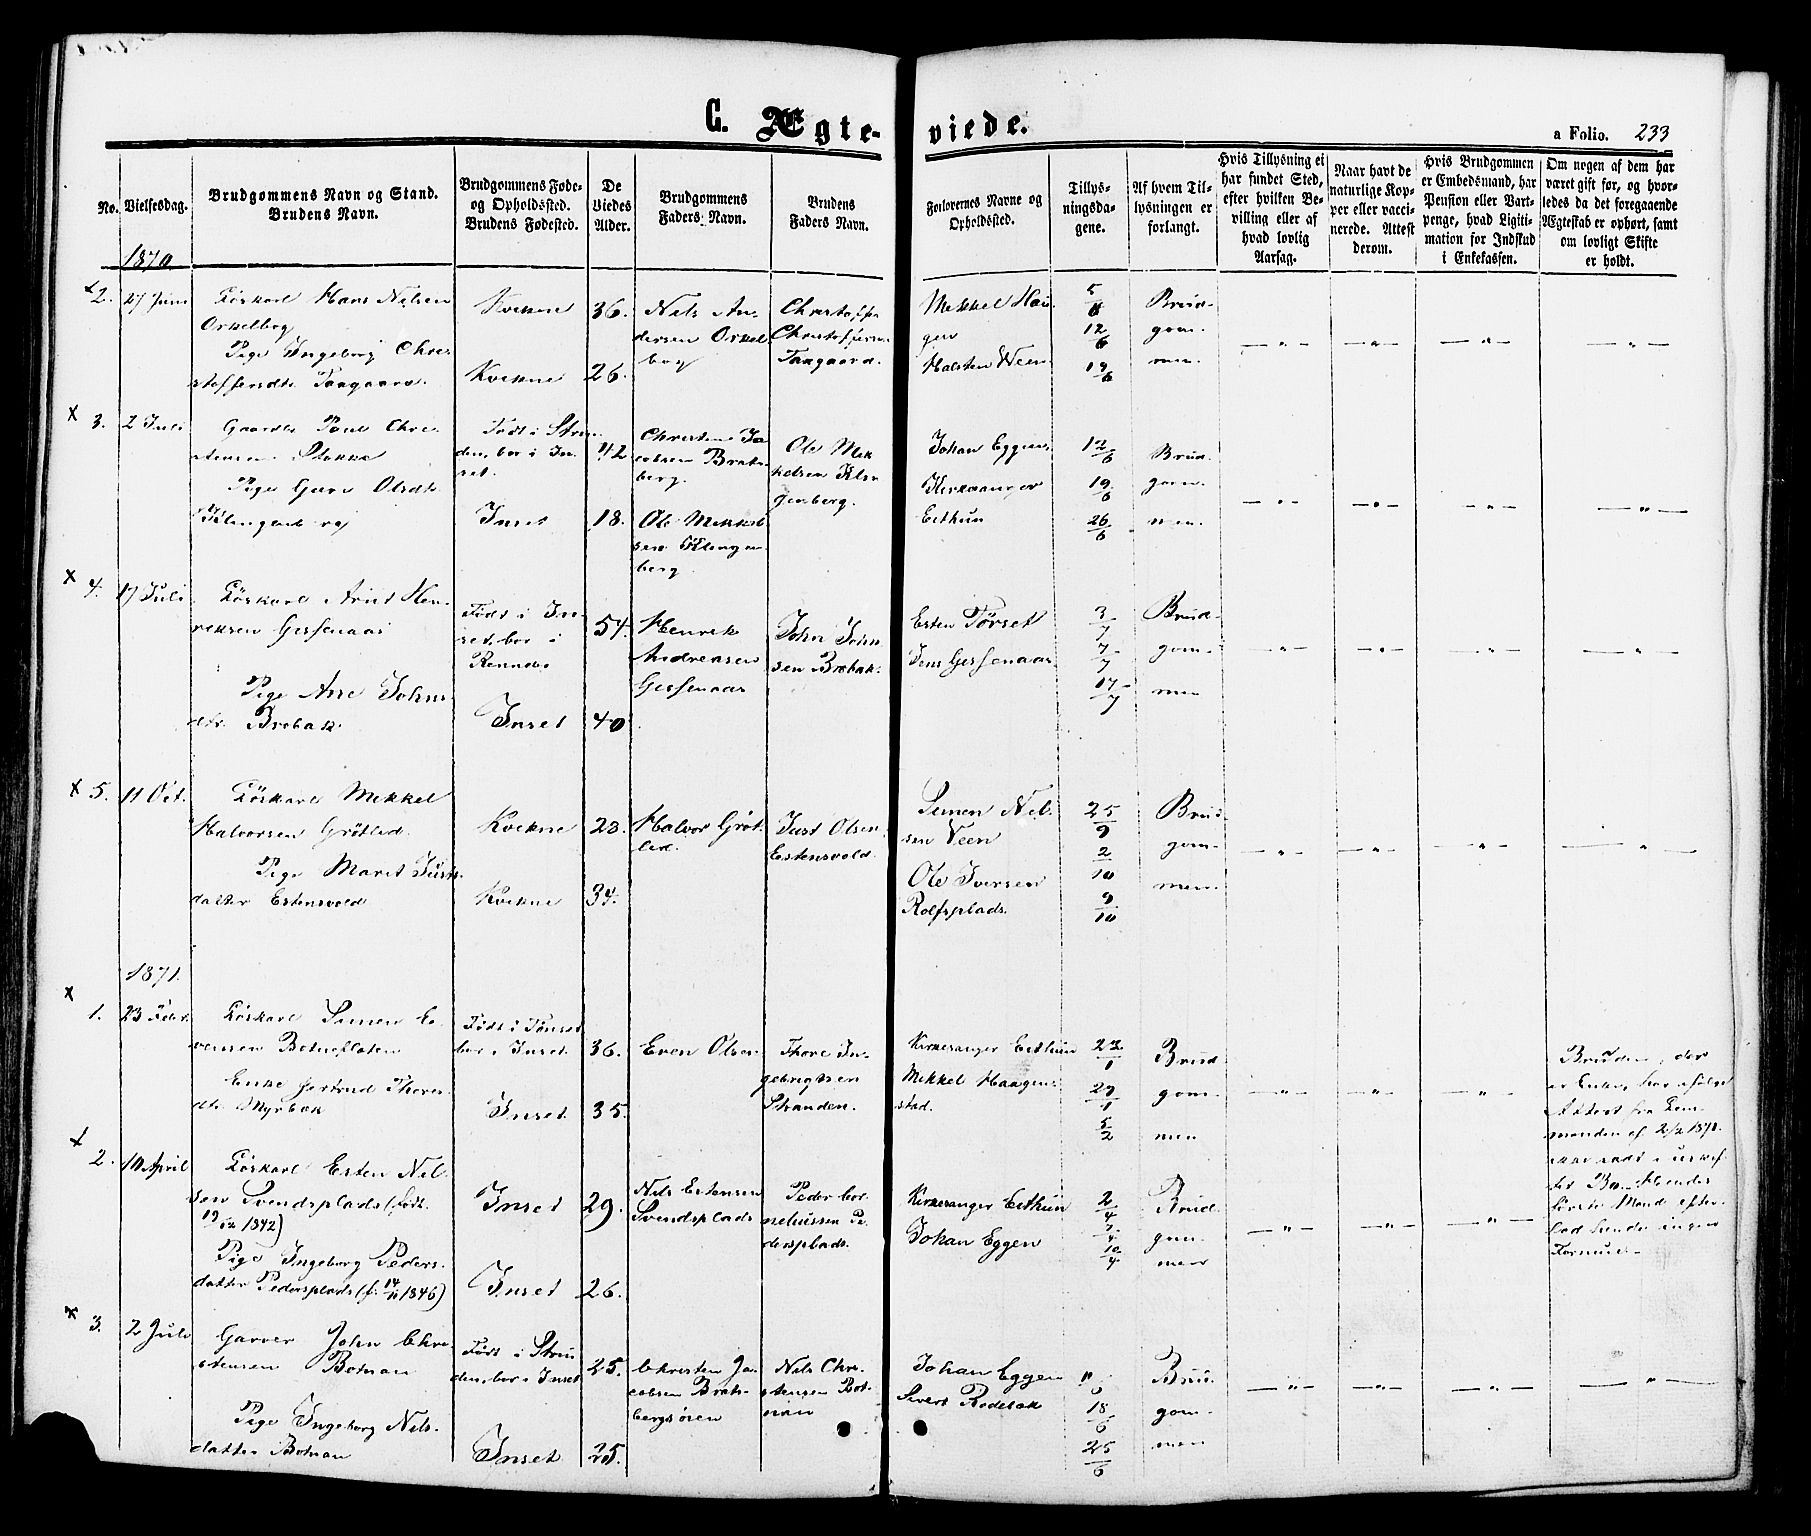 C. Ægte-
viede.
a Folio. 233
No.
Vielsesdag.
Brudgommens Navn og Stand.
Brudens Navn.
Brudgommens Føde-
og Opholdssted.
Brudens Fødested.
De
Viedes
Alder.
Brudgommens
Faders Navn.
Brudens
Faders Navn.
Forlovernes Navne og
Opholdssted.
Tillys-
ningsda-
gene.
Af hvem Til-
lysningen er
forlangt.
Hvis Tillysning ei
har fundet Sted,
efter hvilken Be-
villing eller af
hvad lovlig
Aarsag.
Naar havt de
naturlige Kop-
per eller vacci-
nerede. Attest
derom.
Hvis Brudgommen
er Embedsmand, har
Pension eller Vart-
penge, hvad Ligiti-
mation for Indskud
i Enkekassen.
Om nogen af dem har
været gift før, og hvor-
ledes da det foregaaende
Ægteskab er ophørt, samt
om lovligt Skifte
er holdt.
1870
2. 27 Juni
Løskarl Hans Nilsen
Orkelbog
Pige Ingeborg Chri-
stoffersdtr Taagaard.
Kvikne
Kvikne
36.
26.
Nils An-
dersen Orkel-
bog
Christoffer
Christoffersen
Taagaard.
Mikkel Hau-
gen
Halsten Ween
5/6
12/6
19/6
Brud-
gom-
men.
3. 2 Juli
Gaardb. Poul Chri-
stensen Stokke
Pige Guru Olsdtr
Klingenberg
Født i Strin-
den, bor i In-
set.
Inset
42
18.
Christen Ja-
cobsen Brats-
berg.
Ole Mikkel-
sen Klingen-
berg.
Ole Mik-
kelsen Klin-
genberg.
Johan Eggen
Kirkesanger
Eithun
12/6
19/6
26/6
Brud-
gom-
men.
4. 17 Juli
Løskarl Arnt Hen-
riksen Gissenaas
Pige Ane Johns-
dtr. Brobak.
Født i In-
set, bor i
Rennebo
Inset
54.
40
Henrik
Andreasen
Gissenaas
John John-
sen Brobak.
Esten Tørset
Jens Gissenaas
3/7
7/7
17/7
Brud-
gom-
men
5. 11 Oct.
Løskarl Mikkel
Halvorsen Grøtlid.
Pige Marit Just-
datter Estensvold
Kvikne
Kvikne
28.
34.
Halvor Grøt-
lid.
Just Olsen
Estensvold.
Simen Nil-
sen Veen
Ole Iversen
Rolfsplads.
25/9
2/10
9/10
Brud-
gom-
men.
1871.
1. 23 Febr.
Løskarl Simen E-
vensen Botnefloten
Enke Gjertrud Thores-
dtr. Myrbak
Født i Tønset
bor i Inset.
Inset
36.
35.
Even Olsen
Thore In-
gebrigtsen
Stranden.
Kirkesanger Eithun
Mikkel Haagen-
stad.
22/1
29/1
5/2
Brud
gom-
men
Bruden, der
er Enke, har ifølge
Attest fra Lens-
manden af 2/2 1871.
ikke radt i uskif-
tet Bo. Hendes
første Mand efter-
lod hende ingen
Formue.
2. 10 April
Løskarl Esten Nil-
sen Svendsplads (født
19/12 1842)
Pige Ingeborg Peders-
datter Pedersplads (f. 14/11 1846)
Inset
Inset
29.
26.
Nils Estensen
Svendsplads
Peder Cor-
neliussen Pe-
dersplads.
Kirkesanger Eithun
Johan Eggen
2/4
7/4
10/4
Brud-
gom-
men
3. 2 Juli
Garver John Chri-
stensen Botnan
Pige Ingeborg Nils-
datter Botnan
Født i Strin-
den, bor i Inset
Inset
25.
25.
Christen Ja-
cobsen Brats-
bergsøren
Nils Chri-
stensen Bot-
nan
Johan Eggen
Sivert Rodebak
11/6
18/6
25/6
Brud-
gom-
men